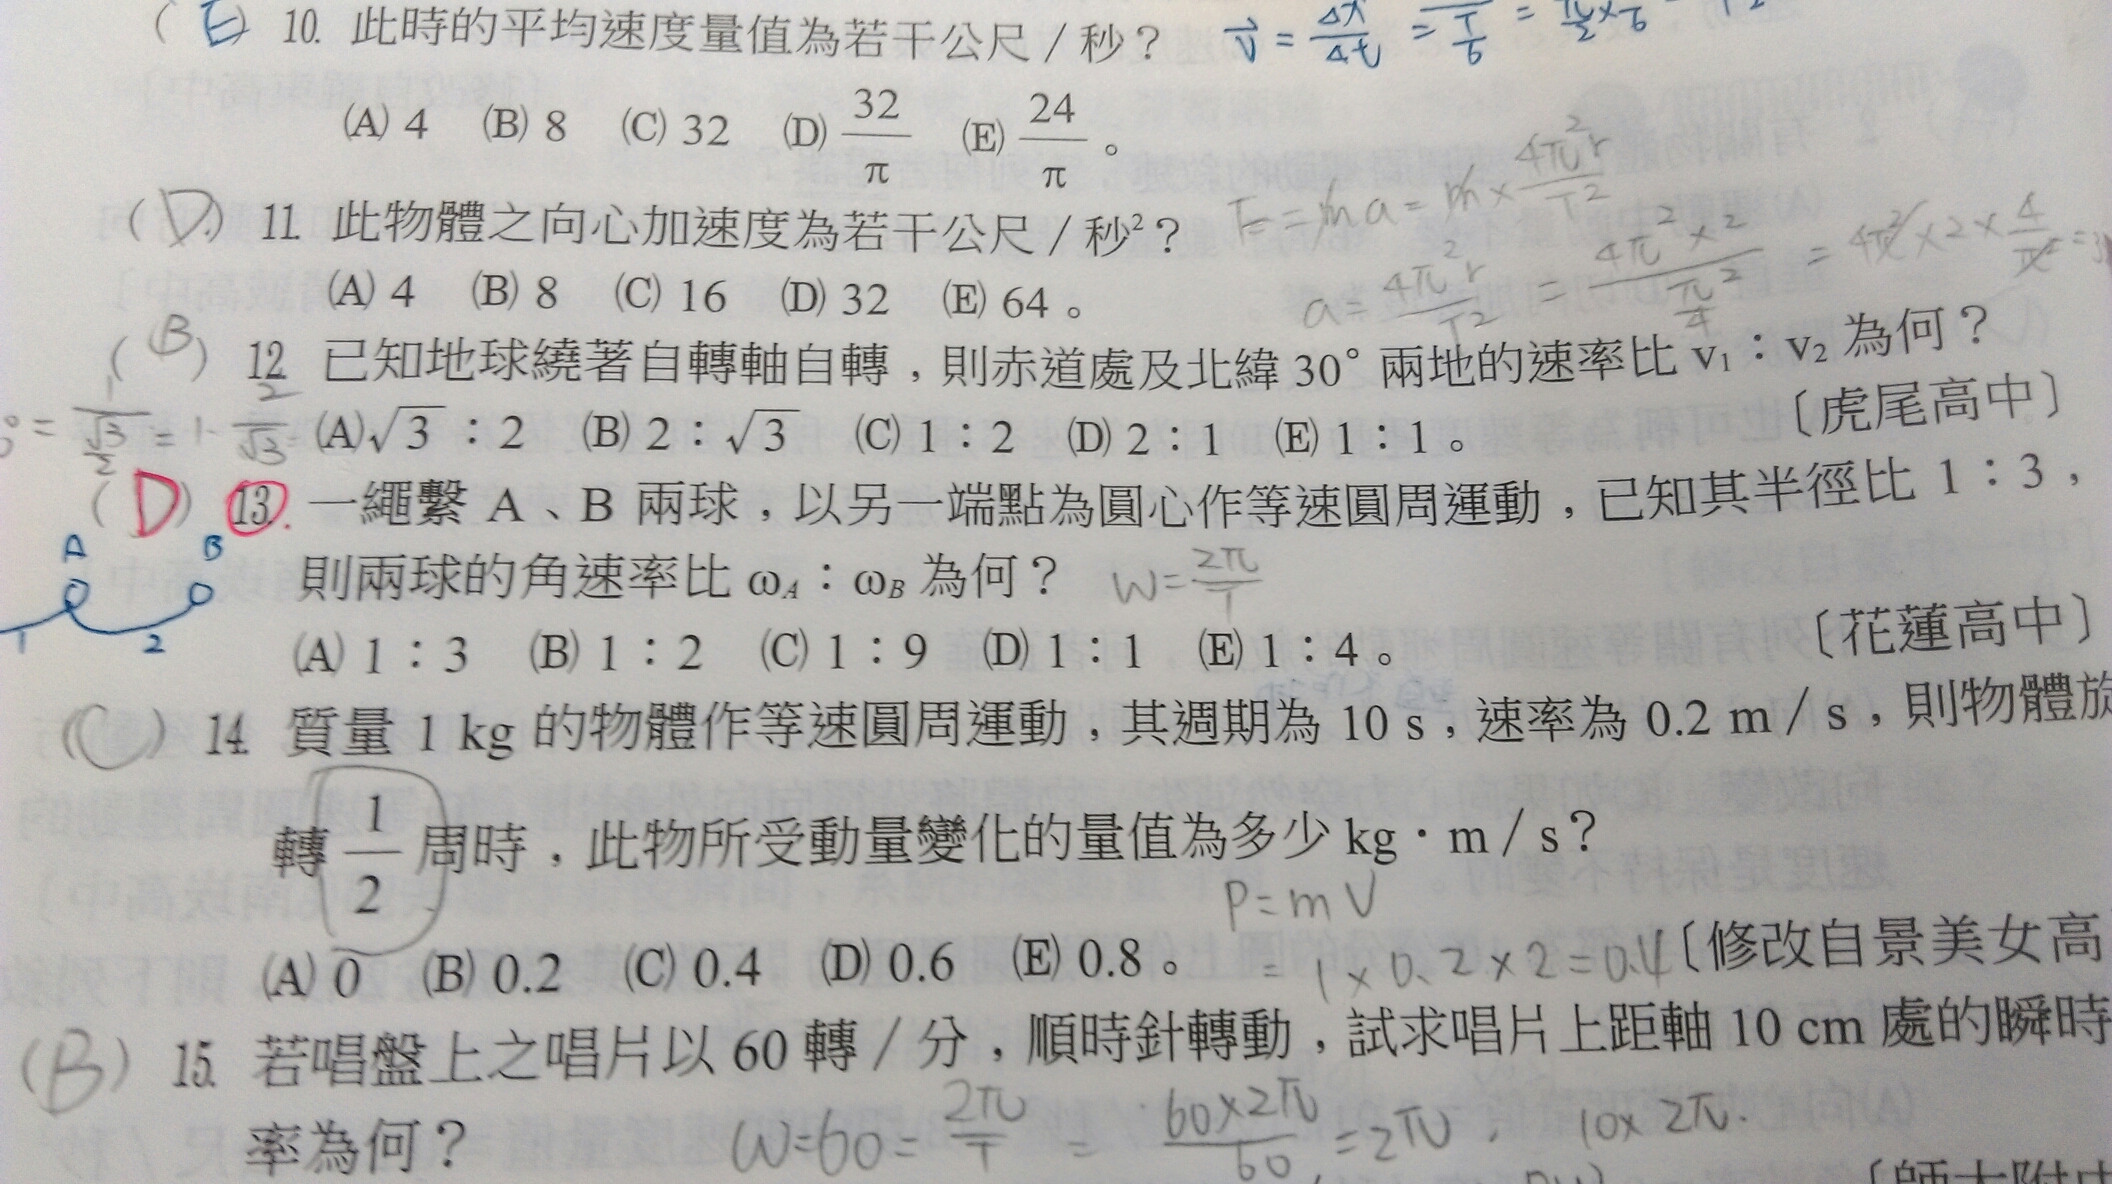 (E) 10. 此時的平均速度量值為若干公尺／秒？ v = Δx/Δt =
(A) 4 (B) 8 (C) 32 (D) 32/π (E) 24/π 。
(D) 11. 此物體之向心加速度為若干公尺／秒²？ F = ma = m × 4π²r/T²
(A) 4 (B) 8 (C) 16 (D) 32 (E) 64 。 a = 4π²r/T² = 4π²×2/(π²/4) = 4π² × 2 × 4/π² = 3
(B) 12. 已知地球繞著自轉軸自轉，則赤道處及北緯 30° 兩地的速率比 v₁：v₂ 為何？
= 1/(√3/2) = 2/√3 (A) √3：2 (B) 2：√3 (C) 1：2 (D) 2：1 (E) 1：1 。 〔虎尾高中〕
(D) 13. 一繩繫 A、B 兩球，以另一端點為圓心作等速圓周運動，已知其半徑比 1：3，
A B
則兩球的角速率比 ωA：ωB 為何？ W = 2π/T
1 2
(A) 1：3 (B) 1：2 (C) 1：9 (D) 1：1 (E) 1：4 。 〔花蓮高中〕
(C) 14. 質量 1 kg 的物體作等速圓周運動，其週期為 10 s，速率為 0.2 m／s，則物體旋
轉 1/2 周時，此物所受動量變化的量值為多少 kg・m／s？
P = mV
(A) 0 (B) 0.2 (C) 0.4 (D) 0.6 (E) 0.8 。 = 1 × 0.2 × 2 = 0.4 〔修改自景美女高
(B) 15. 若唱盤上之唱片以 60 轉／分，順時針轉動，試求唱片上距軸 10 cm 處的瞬時
率為何？ W = 60 = 2π/T = 60×2π/60 = 2π . 10 × 2π.
〔師大附中